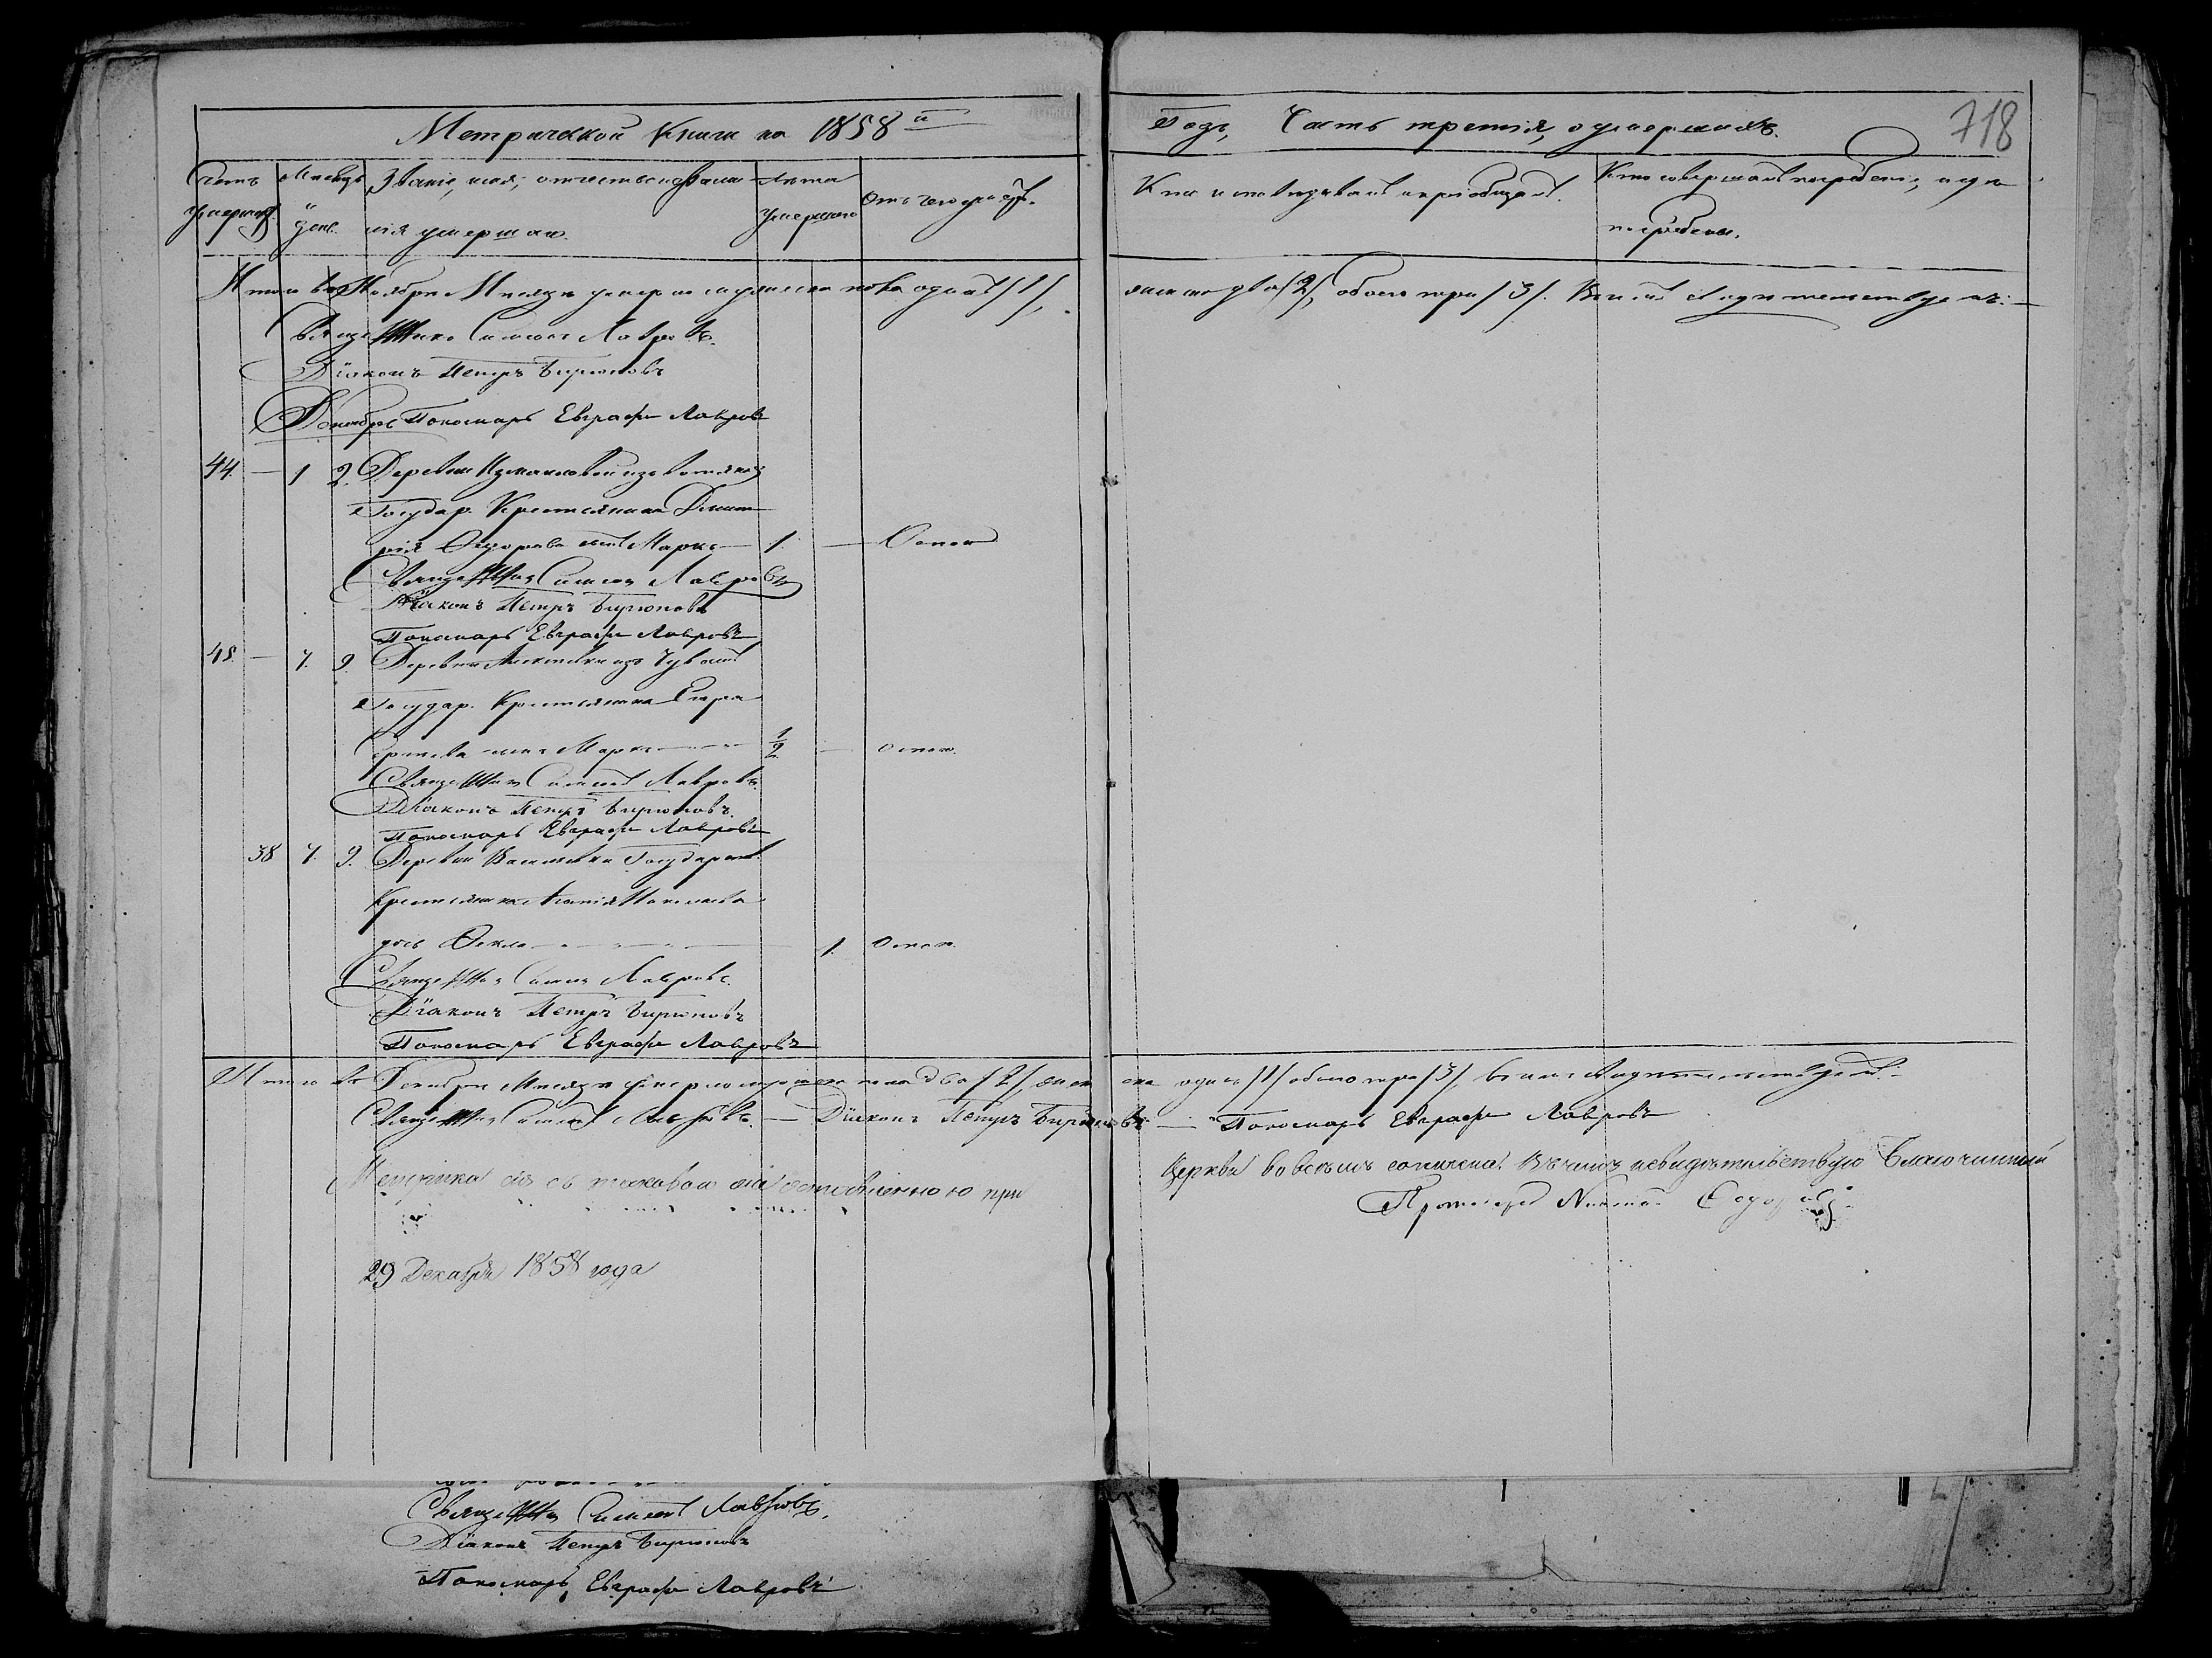 Метрической книги на 1858 й
Годъ, Часть третія, о умершихъ.
718
Счетъ умершихъ.
Мѣсяцъ и день.
Званіе, имя, отчество и фамилія умершаго.
Лѣта умершаго
Отъ чего умеръ.
Кто исповѣдывалъ и пріобщалъ.
Кто совершалъ погребеніе, и гдѣ погребены.
Итого въ Ноябрѣ Мѣсяцѣ умерло мужеска пола одинъ /1/,
женска два /2/, обоего три /3/. Въ чемъ свидѣтельствуемъ:
Священникъ Симеонъ Лавровъ.
Діаконъ Петръ Бирюковъ
Декабрь Пономарь Евграфъ Лавровъ
44 — 1 2. Деревни изъ вотяковъ
Государ. Крестьянина Димит
рія Ѳедорова сынъ Марко — 1. — Оспою
Священникъ Симеонъ Лавровъ
Діаконъ Петръ Бирюковъ
Пономарь Евграфъ Лавровъ
45. — 7. 9. Деревни изъ Чувашъ
Государ. Крестьянина
сынъ Марко — 1/2 — оспою.
Священникъ Симеонъ Лавровъ.
Діаконъ Петръ Бирюковъ.
Пономарь Евграфъ Лавровъ
38 7. 9. Деревни Васильевки Государств.
Крестьянина
дочь Ѳекла — 1. Оспою.
Священникъ Симеонъ Лавровъ.
Діаконъ Петръ Бирюковъ
Пономарь Евграфъ Лавровъ
Итого въ Декабрѣ Мѣсяцѣ умерло мужеска пола два /2/, жен
ска одинъ /1/ обоего три /3/, въ чемъ свидѣтельствуемъ.
Священникъ Симеонъ Лавровъ. — Діаконъ Петръ Бирюковъ — Пономарь Евграфъ Лавровъ
Метрика сія съ таковою оставленною при
Церкви во всемъ согласна. Въ чемъ свидѣтельствую Благочинный
Протоіерей
29 Декабря 1858 года
Священникъ Симеонъ Лавровъ.
Діаконъ Петръ Бирюковъ
Пономарь Евграфъ Лавровъ